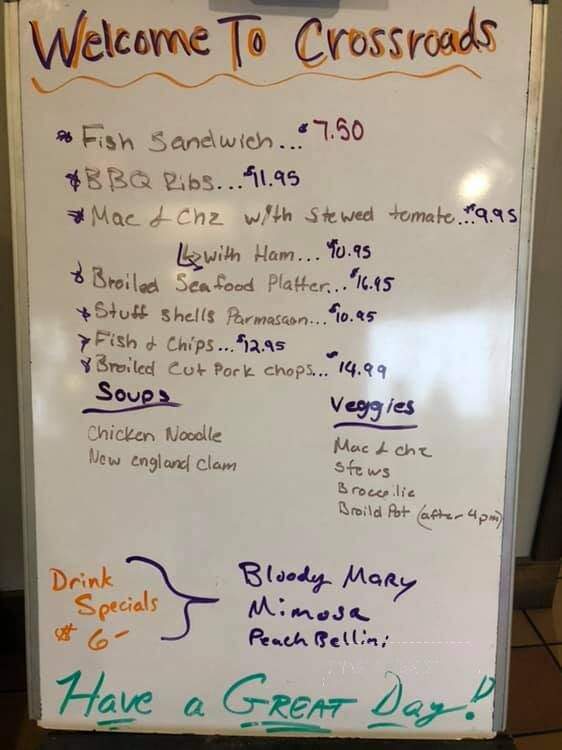 Welcome To Crossroads
* Fish Sandwich... $7.50
* BBQ Ribs... $11.95
* Mac & Chz with stewed tomato... $9.95
↳ with Ham... $10.95
* Broiled Seafood Platter... $16.95
* Stuff shells Parmasaan... $10.95
* Fish & Chips... $12.95
* Broiled Cut Pork chops... $14.99
Soups
Chicken Noodle
New england Clam
Veggies
Mac & chz
Stews
Broccilie
Broild Pot (after 4pm)
Drink
Specials
$ 6-
Bloody Mary
Mimosa
Peach Bellini
Have a GREAT Day!